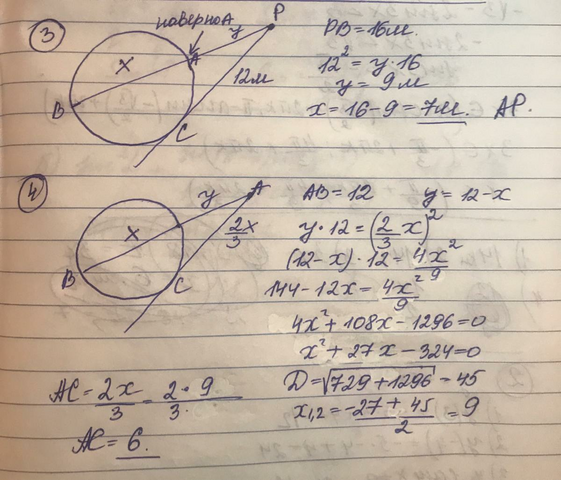 ③
наверно A
P
y
x
A
12м
B
C
PB = 16м.
12² = y·16
y = 9м
x = 16 - 9 = 7м. AP.
④
y
A
x
2/3 x
B
C
AB = 12 y = 12 - x
y·12 = (2/3 x)²
(12-x)·12 = 4x²/9
144 - 12x = 4x²/9
4x² + 108x - 1296 = 0
x² + 27x - 324 = 0
D = √729 + 1296 = 45
x₁,₂ = -27 + 45/2 = 9
AC = 2x/3 = 2·9/3.
AC = 6.